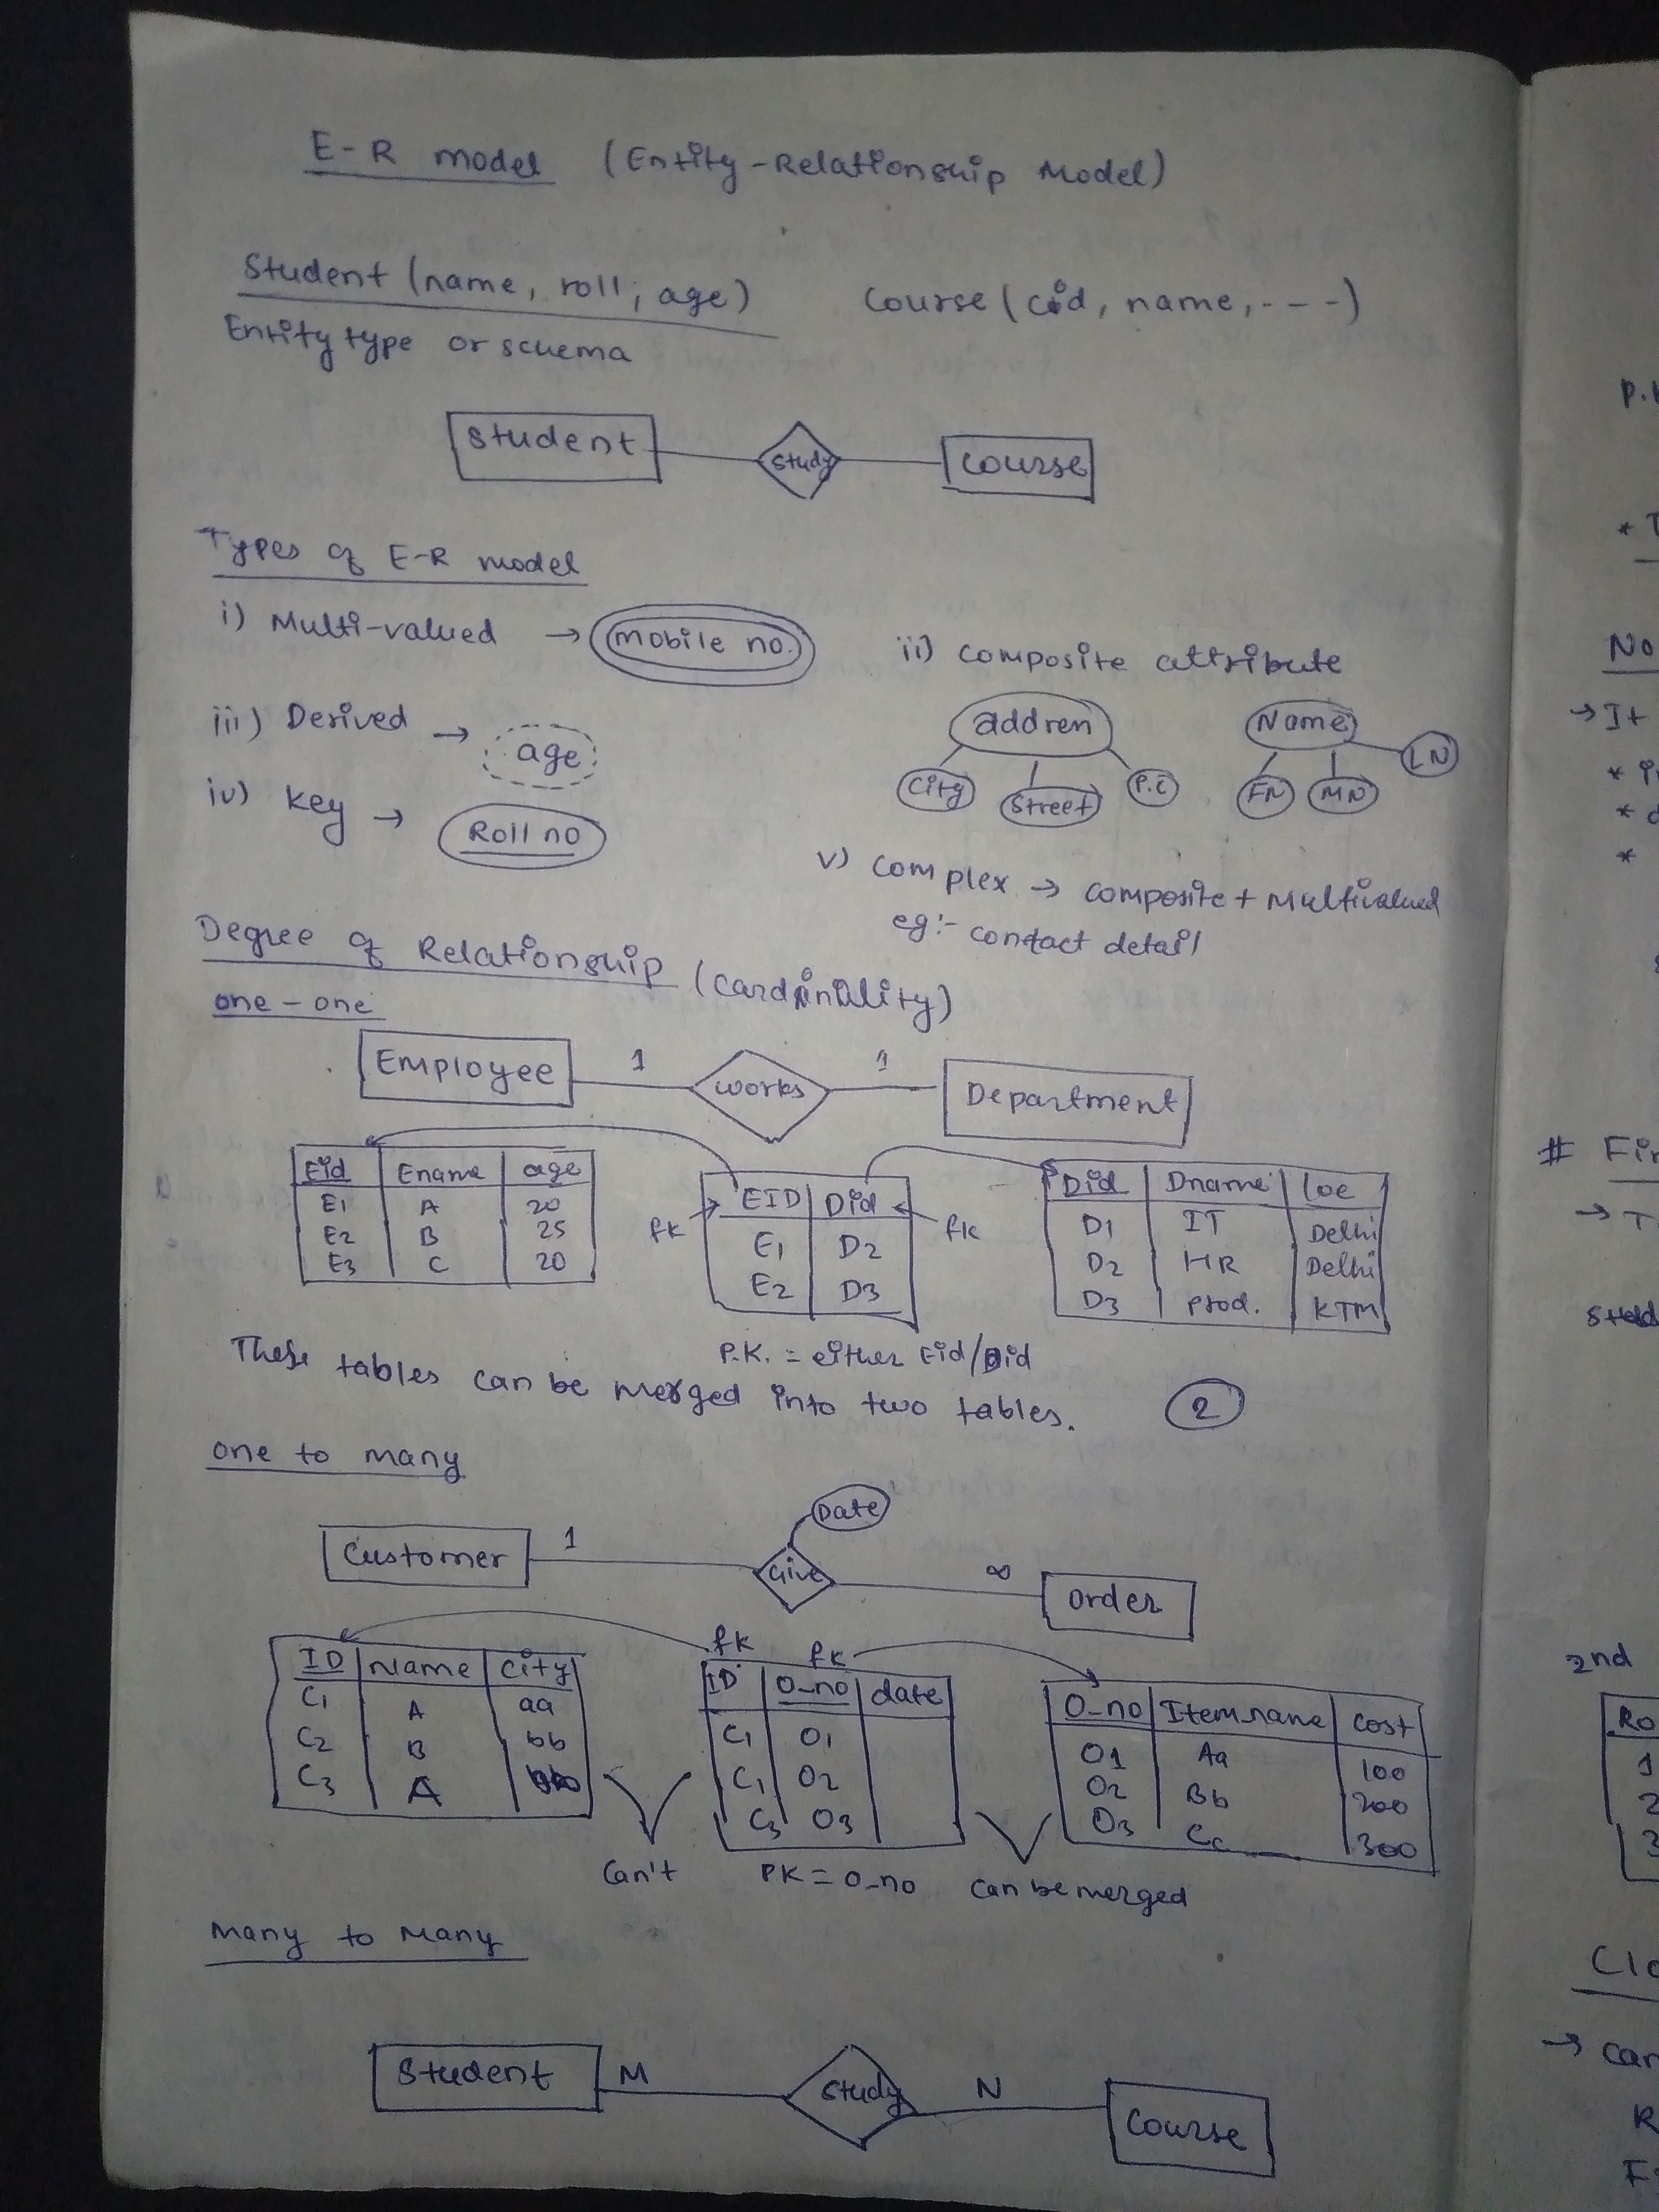 E-R model (Entity-Relationship Model)
Student (name, roll, age) Course (cid, name, - - -)
Entity type or schema
Student Study Course
Types of E-R model
i) Multi-valued → mobile no.
ii) composite attribute
address Name
City Street P.C FN MN LN
iii) Derived → age
iv) key → Roll no
v) complex → composite + multivalued
eg:- contact detail
Degree of Relationship (Cardinality)
one - one
Employee 1 works 1 Department
Eid Ename age
E1 A 20
E2 B 25
E3 C 20
fk EID Did fk
E1 D2
E2 D3
Did Dname loc
D1 IT Delhi
D2 HR Delhi
D3 Prod. KTM
P.K. = either Eid/Did
These tables can be merged into two tables. 2
one to many
Date
Customer 1 Give ∞ order
ID Name City
C1 A aa
C2 B bb
C3 A
fk fk
ID O_no date
C1 O1
C1 O2
C3 O3
O_no Item_name Cost
O1 Aa 100
O2 Bb 200
O3 Cc 300
Can't PK = O_no Can be merged
Many to Many
Student M Study N Course
No
→ It
# Fir
→ T
2nd
Ro
1
2
3
Cla
→ Can
R